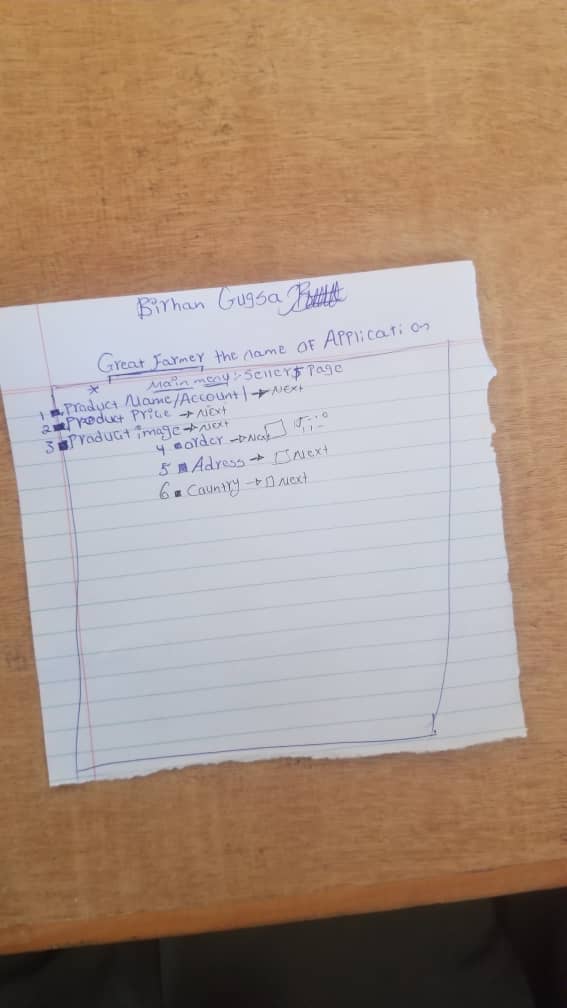 Birhan Gugsa
Great Farmer the name OF Application
Main meny :- Sellers Page
1 Product Name/Account → NEXt
2 Product Price → NEXt
3 Product image → NEXt
4. order → Next
5 Adress → Next
6. Cauntry → Next